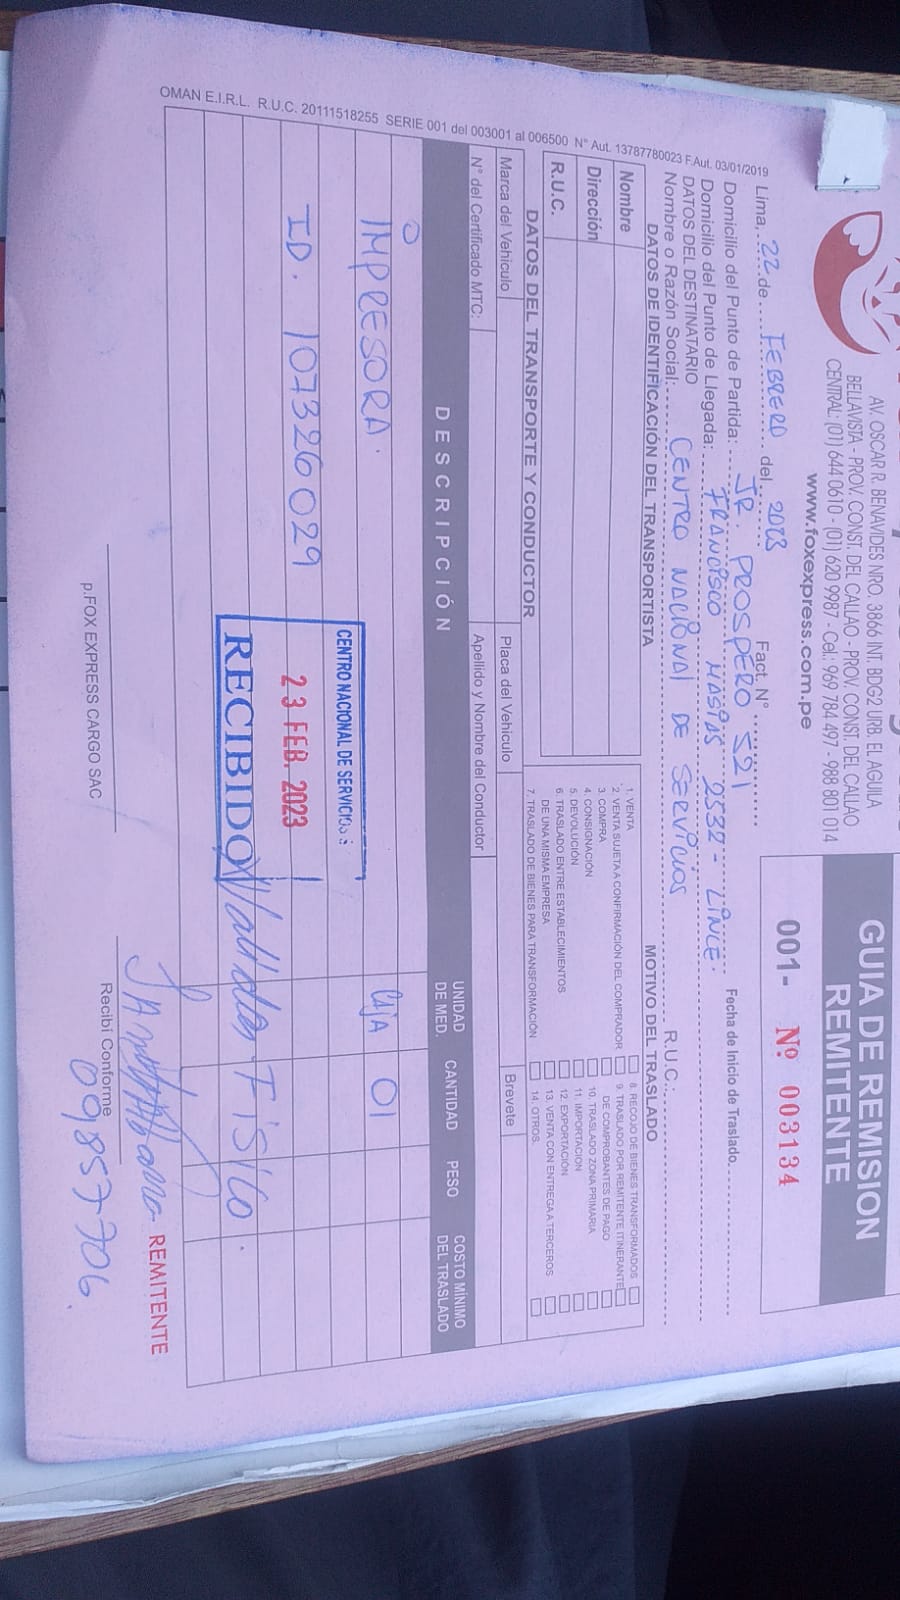 AV. OSCAR R. BENAVIDES NRO. 3866 INT. BDG2 URB. EL AGUILA
BELLAVISTA - PROV. CONST. DEL CALLAO - PROV. CONST. DEL CALLAO
CENTRAL: (01) 644 0610 - (01) 620 9987 - Cel.: 969 784 497 - 988 801 014
www.foxexpress.com.pe
GUIA DE REMISION
REMITENTE
001- Nº 003134
Lima, 22 de FEBRERO del 2023 Fact. N°
Domicilio del Punto de Partida: JR. PROSPERO 521 Fecha de Inicio de Traslado.
Domicilio del Punto de Llegada: FRANCISCO MASIAS 2532 - LINCE.
DATOS DEL DESTINATARIO
Nombre o Razón Social: CENTRO NACIONAL DE SERVICIOS R.U.C.:
DATOS DE IDENTIFICACIÓN DEL TRANSPORTISTA
Nombre
Dirección
R.U.C.
MOTIVO DEL TRASLADO
1. VENTA
2. VENTA SUJETA A CONFIRMACIÓN DEL COMPRADOR
3. COMPRA
4. CONSIGNACIÓN
5. DEVOLUCIÓN
6. TRASLADO ENTRE ESTABLECIMIENTOS
DE UNA MISMA EMPRESA
7. TRASLADO DE BIENES PARA TRANSFORMACIÓN
8. RECOJO DE BIENES TRANSFORMADOS
9. TRASLADO POR REMITENTE ITINERANTE
DE COMPROBANTES DE PAGO
10. TRASLADO ZONA PRIMARIA
11. IMPORTACION
12. EXPORTACIÓN
13. VENTA CON ENTREGA A TERCEROS
14. OTROS.
DATOS DEL TRANSPORTE Y CONDUCTOR
Marca del Vehiculo Placa del Vehiculo Brevete
N° del Certificado MTC: Apellido y Nombre del Conductor
DESCRIPCIÓN UNIDAD DE MED. CANTIDAD PESO COSTO MÍNIMO DEL TRASLADO
IMPRESORA. CAJA 01
ID. 107326029
CENTRO NACIONAL DE SERVICIOS
23 FEB. 2023
RECIBIDO
Validar Fisico.
OMAN E.I.R.L. R.U.C. 20111518255 SERIE 001 del 003001 al 006500 N° Aut. 13787780023 F.Aut. 03/01/2019
p.FOX EXPRESS CARGO SAC
Recibí Conforme
09857706.
REMITENTE